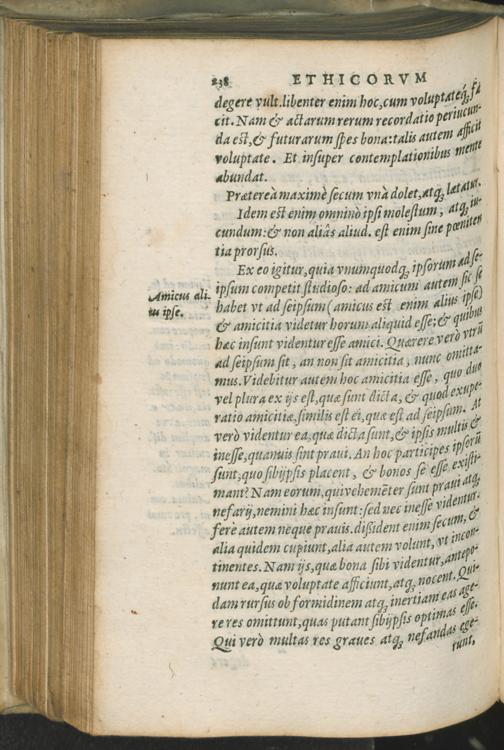 238 ETHICORVM
degere vult. libenter enim hoc, cum voluptateq́; fa
cit. Nam & actarum rerum recordatio periucun-
da est, & futurarum spes bona: talis autem afficit
voluptate. Et insuper contemplationibus mente
abundat.
Prætereà maximè secum vnà dolet, atq; lætatur.
Idem est enim omninò ipsi molestum, atq; iu-
cundum: & non aliâs aliud. est enim sine pœniten
tia prorsus.
Ex eo igitur, quia vnumquodq; ipsorum ad se-
ipsum competit studioso: ad amicum autem sic se
Amicus ali-
us ipse.
habet vt ad seipsum (amicus est enim alius ipse)
& amicitia videtur horum aliquid esse; & quibus
hæc insunt videntur esse amici. Quærere verò vtrū
ad seipsum sit, an non sit amicitia, nunc omitta-
mus. Videbitur autem hoc amicitia esse, quo duo
vel plura ex ijs est, quæ sunt dicta, & quod exupe-
ratio amicitiæ, similis est ei, quæ est ad seipsum. At
verò videntur ea, quæ dicta sunt, & ipsis multis &
inesse, quanuis sint praui. An hoc participes ipsorū
sunt, quo sibijpsis placent, & bonos se esse existi-
mant? Nam eorum, qui vehemēter sunt praui atq;
nefarij, nemini hæc insunt: sed nec inesse videntur.
ferè autem neque prauis. dissident enim secum, &
alia quidem cupiunt, alia autem volunt, vt incon-
tinentes. Nam ijs, quæ bona sibi videntur, antepo-
nunt ea, quæ voluptate afficiunt, atq; nocent. Qui-
dam rursus ob formidinem atq; inertiam eas age-
re res omittunt, quas putant sibijpsis optimas esse.
Qui verò multas res graues atq; nefandas ege-
runt,